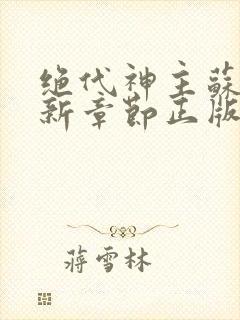 绝代神主蘇
新章節正版
蔣雪林